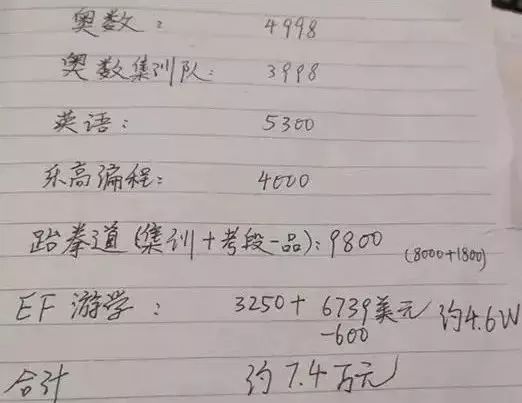 奥数: 4998
奥数集训队: 3998
英语: 5300
乐高编程: 4000
跆拳道(集训+考段一品): 9800 (8000+1800)
EF 游学: 3250+ 6739美元 约4.6W
-600
合计 约7.4万元